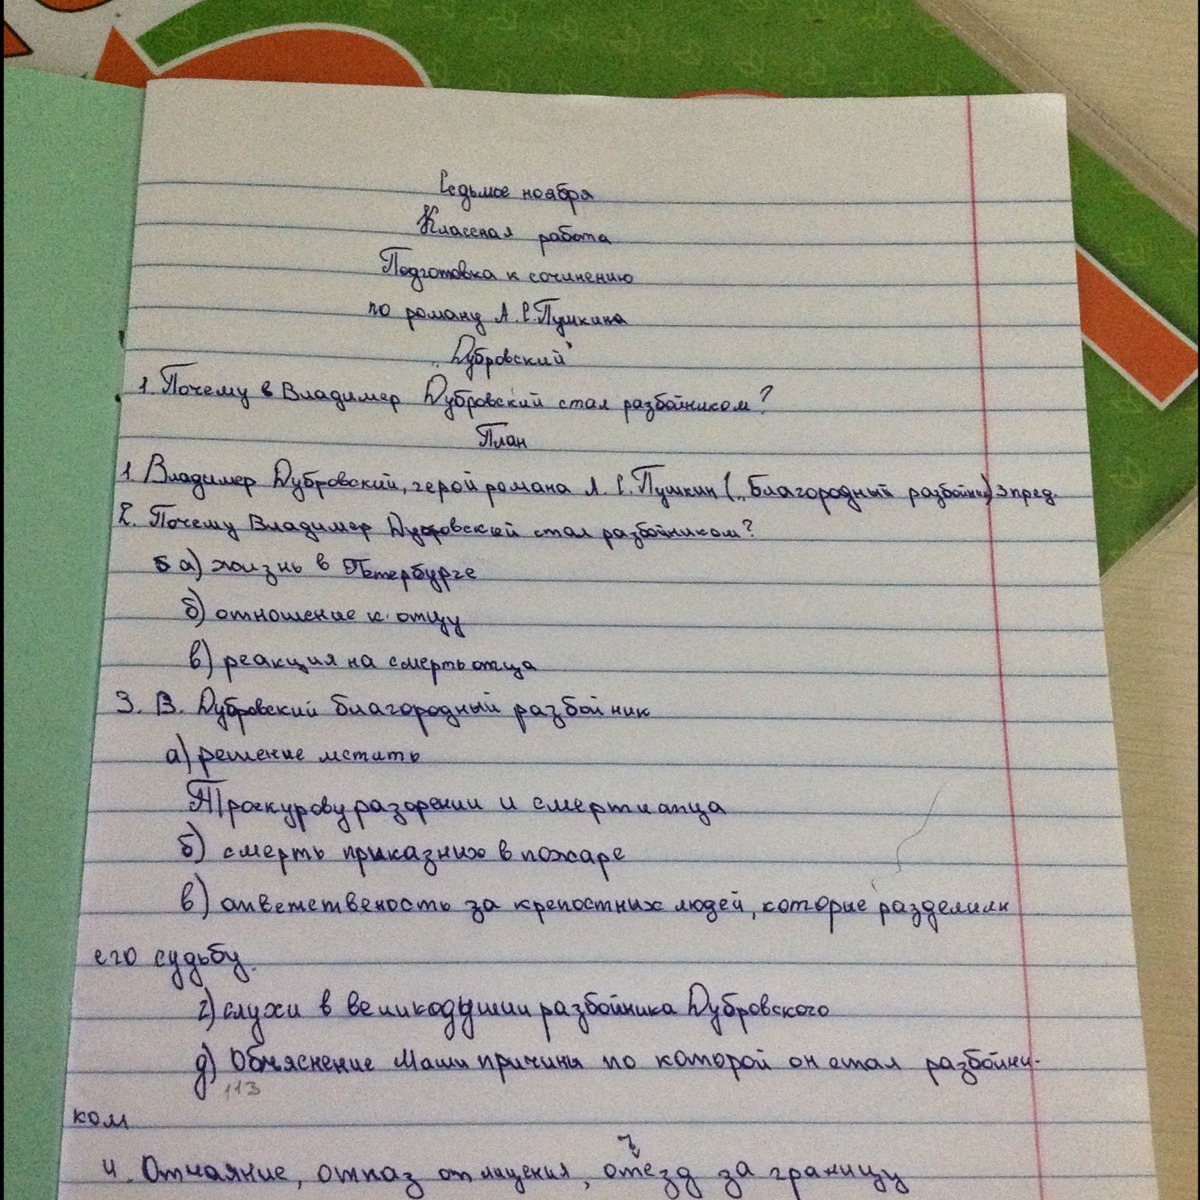 Седьмое ноября
Классная работа
Подготовка к сочинению
по роману А.С.Пушкина
„Дубровский"
1. Почему в Владимер Дубровский стал разбойником?
План
1. Владимер Дубровский, герой романа А.С.Пушкин („Благородный разбойник) 3 пред.
2. Почему Владимер Дубровский стал разбойником?
а) жизнь в Петербурге
б) отношение к отцу
в) реакция на смерть отца
3. В. Дубровский благородный разбойник
а) решение мстить
Троекурову разорении и смерти отца
б) смерть приказных в пожаре
в) ответственость за крепостных людей, которые разделили
его судьбу.
г) слухи в великодушии разбойника Дубровского
д) Объяснение Маши причины по которой он стал разбойни-
113
ком
ъ
4. Отчаяние, отказ от мщения, отезд за границу